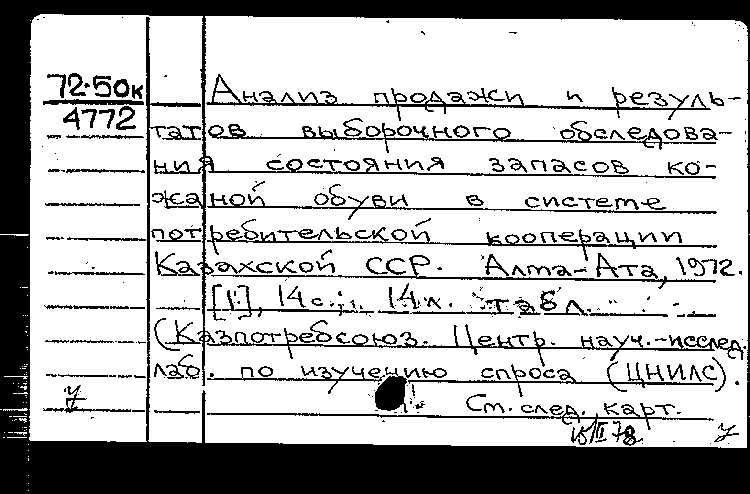 72-50к
4772
Анализ продажи и резуль-
татов выборочного обследова-
ния состояния запасов ко-
жаной обуви в системе
потребительской кооперации
Казахской ССР. Алма-Ата, 1972.
14 с.; 14 л. табл.
(Казпотребсоюз. Центр. науч.-исслед.
лаб. по изучению спроса (ЦНИЛС).
См. след. карт.